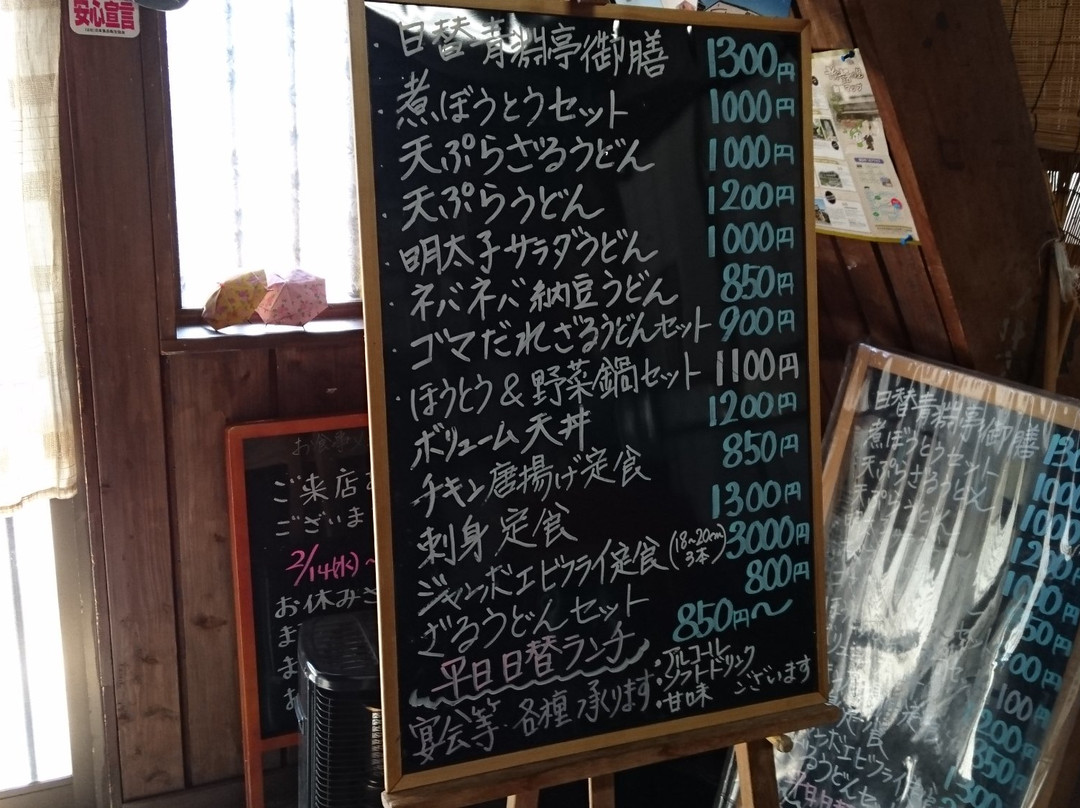 安心宣言
日替青淵亭御膳 1300円
煮ぼうとうセット 1000円
天ぷらざるうどん 1000円
天ぷらうどん 1200円
明太子サラダうどん 1000円
ネバネバ納豆うどん 850円
ゴマだれざるうどんセット 900円
ほうとう&野菜鍋セット 1100円
ボリューム天丼 1200円
チキン唐揚げ定食 850円
刺身定食 1300円
ジャンボエビフライ定食(18~20cm 3本) 3000円
ざるうどんセット 800円
平日日替ランチ 850円~
宴会等各種承ります
・アルコール
・ソフトドリンク
・甘味 ございます
ご来店
ございま
2/14(水)~
お休みさ
日替青淵亭御膳
煮ぼうとうセット 1000
天ぷらざるうどん 1000
天ぷらうどん 1200